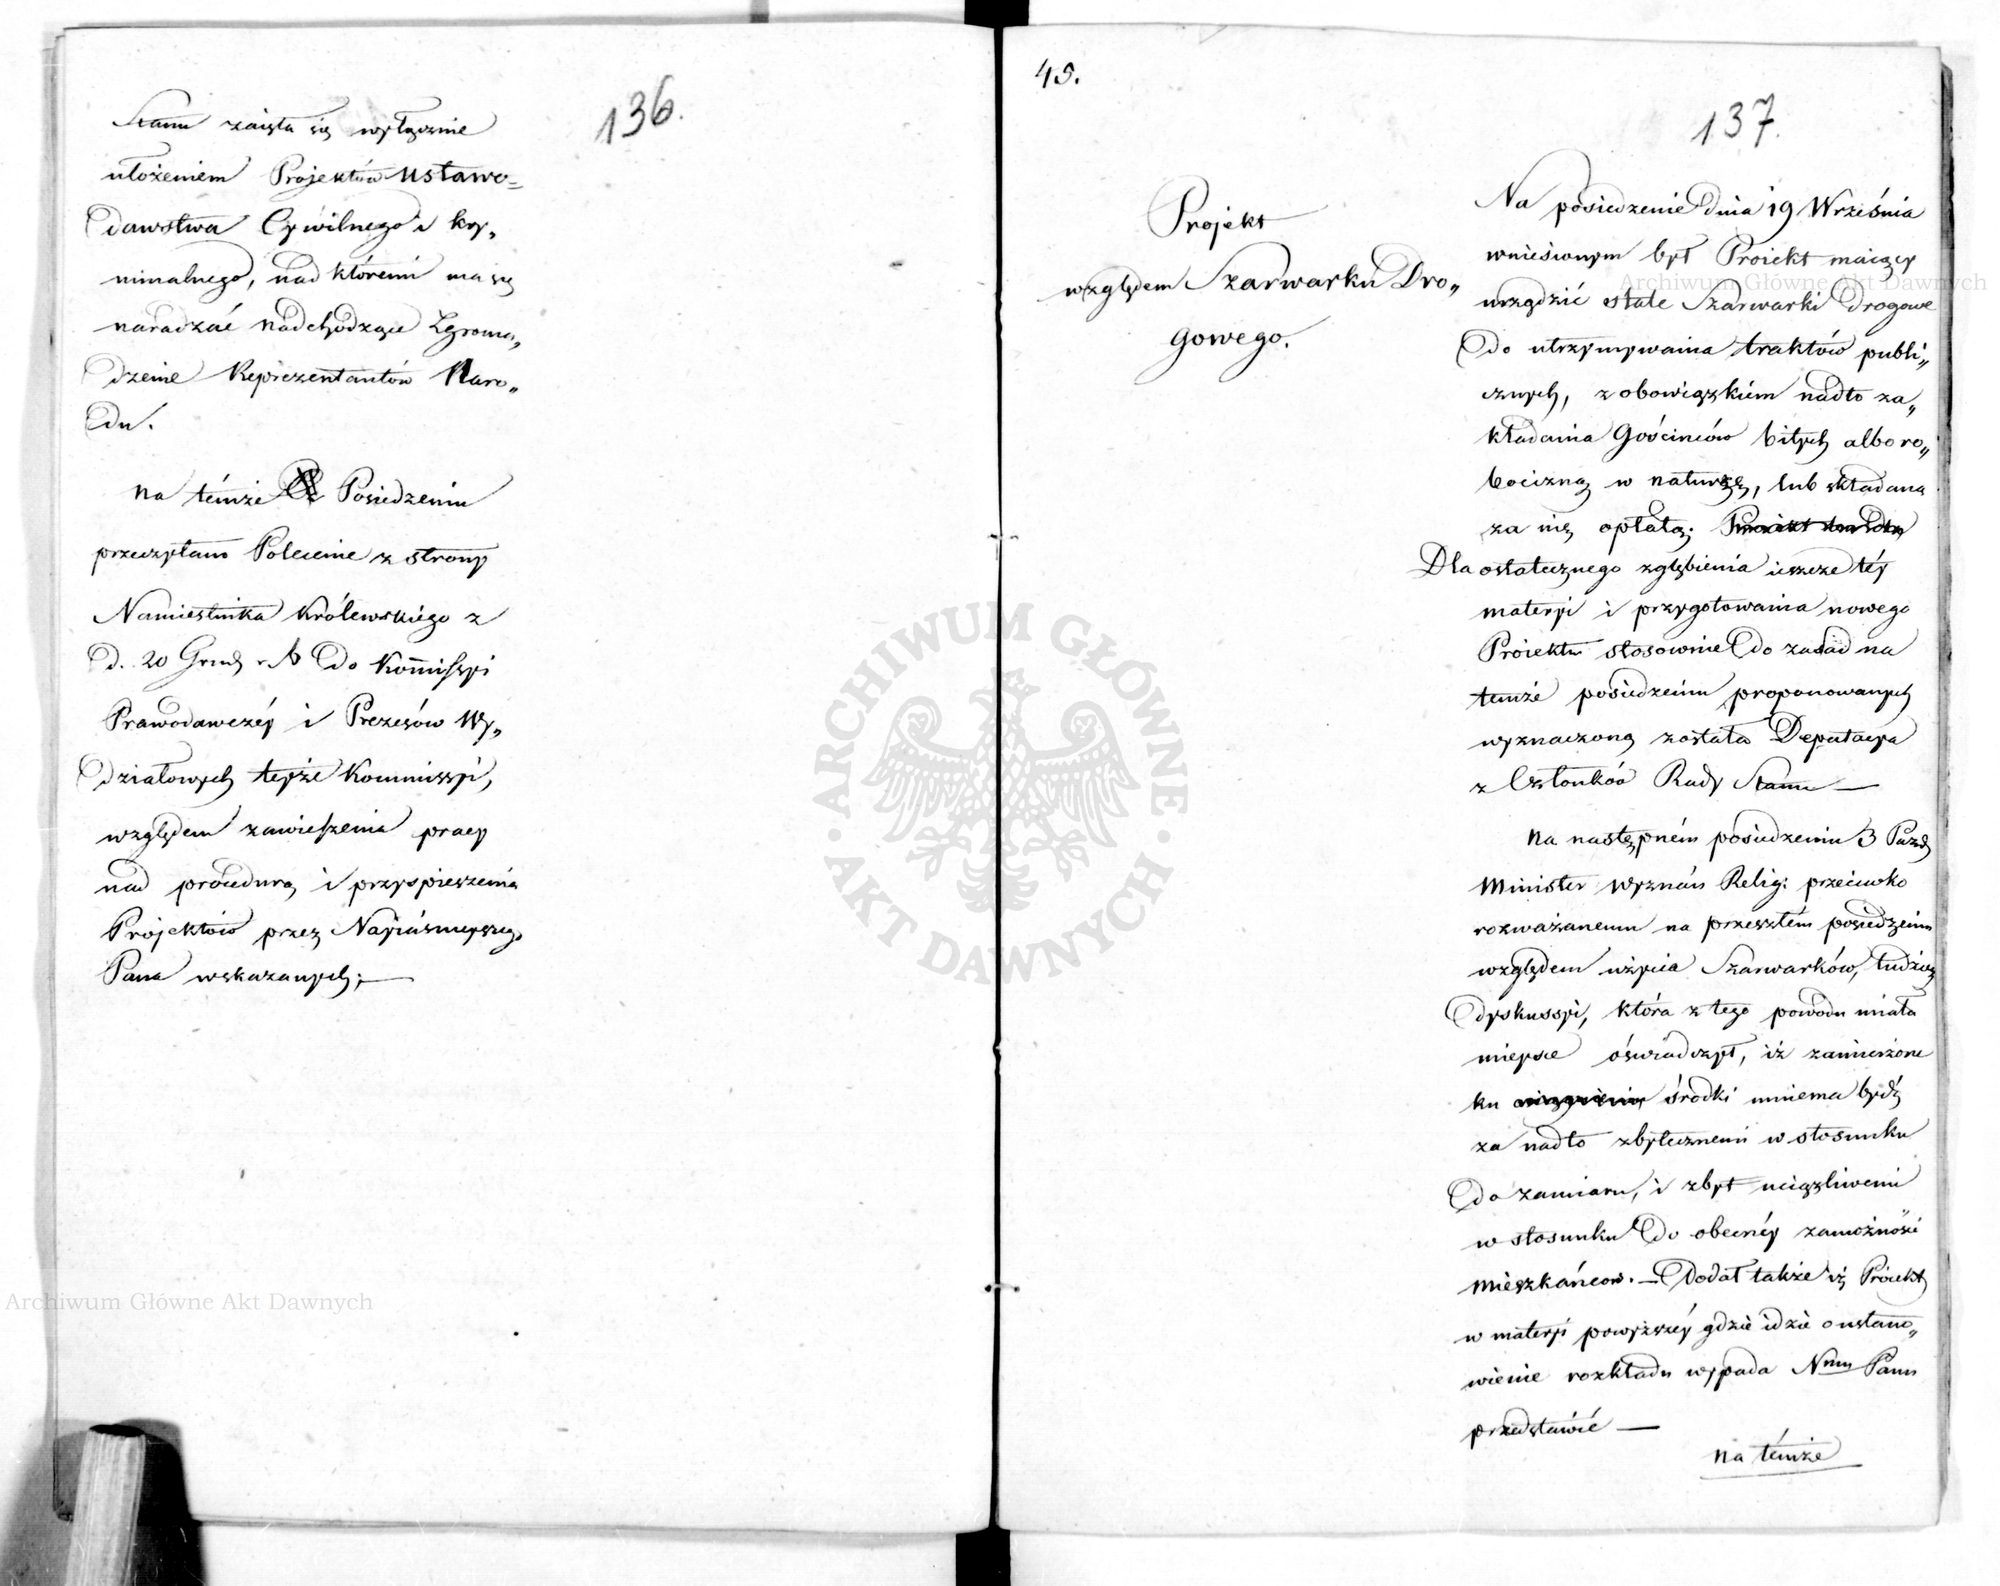 136.
Stanu zaięta się wyłącznie
ułożeniem Projektów Ustawo=
dawstwa Cywilnego i kry„
minalnego, nad któremi ma się
naradzać nadchodzące Zgroma„
dzenie Reprezentantów Naro„
du.
Na témże Posiedzeniu
przeczytano Polecenie z strony
Namiestnika Królewskiego z
d. 20 Grud. r. b. do Kommissyi
Prawodawczéy i Prezesów Wy„
działowych teyże Kommissyi,
względem zawieszenia pracy
nad procedurą i przyspieszenia
Projektów przez Nayiaśnieyszego
Pana wskazanych;—
45.
137.
Projekt
względem Szarwarku Dro„
gowego.
Na posiedzenie dnia 19 Września
wniesionym był Proiekt maiący
urządzić stałe Szarwarki drogowe
do utrzymywania traktów publi„
cznych, z obowiązkiem nadto za„
kładania Gościńców bitych albo ro„
bocizną w naturze, lub składaną
za nię opłatą;
Dla ostatecznego zgłębienia ieszcze téy
materyi i przygotowania nowego
Proiektu stosownie do zasad na
temże posiedzeniu proponowanych
wyznaczoną została Deputacya
z Członków Rady Stanu —
Na następném posiedzeniu 3 Paźd.
Minister Wyznań Relig: przeciwko
rozważanemu na przeszłém posiedzeniu
względem użycia Szarwarków, tudzież
dyskussyi, która z tego powodu miała
mieysce oświadczył, iż zamierzone
ku środki mniema bydź
za nadto zbytecznemi w stosunku
do zamiaru, i zbyt uciążliwemi
w stosunku do obecnéy zamożności
Mieszkańcow. — Dodał także iż Proiekt
w materyi powyższéy gdzie idzie o ustano„
wienie rozkładu wypada Nmu Panu
przedstawić —
Na témże
Archiwum Główne Akt Dawnych
Archiwum Główne Akt Dawnych
ARCHIWUM GŁÓWNE
· AKT DAWNYCH ·